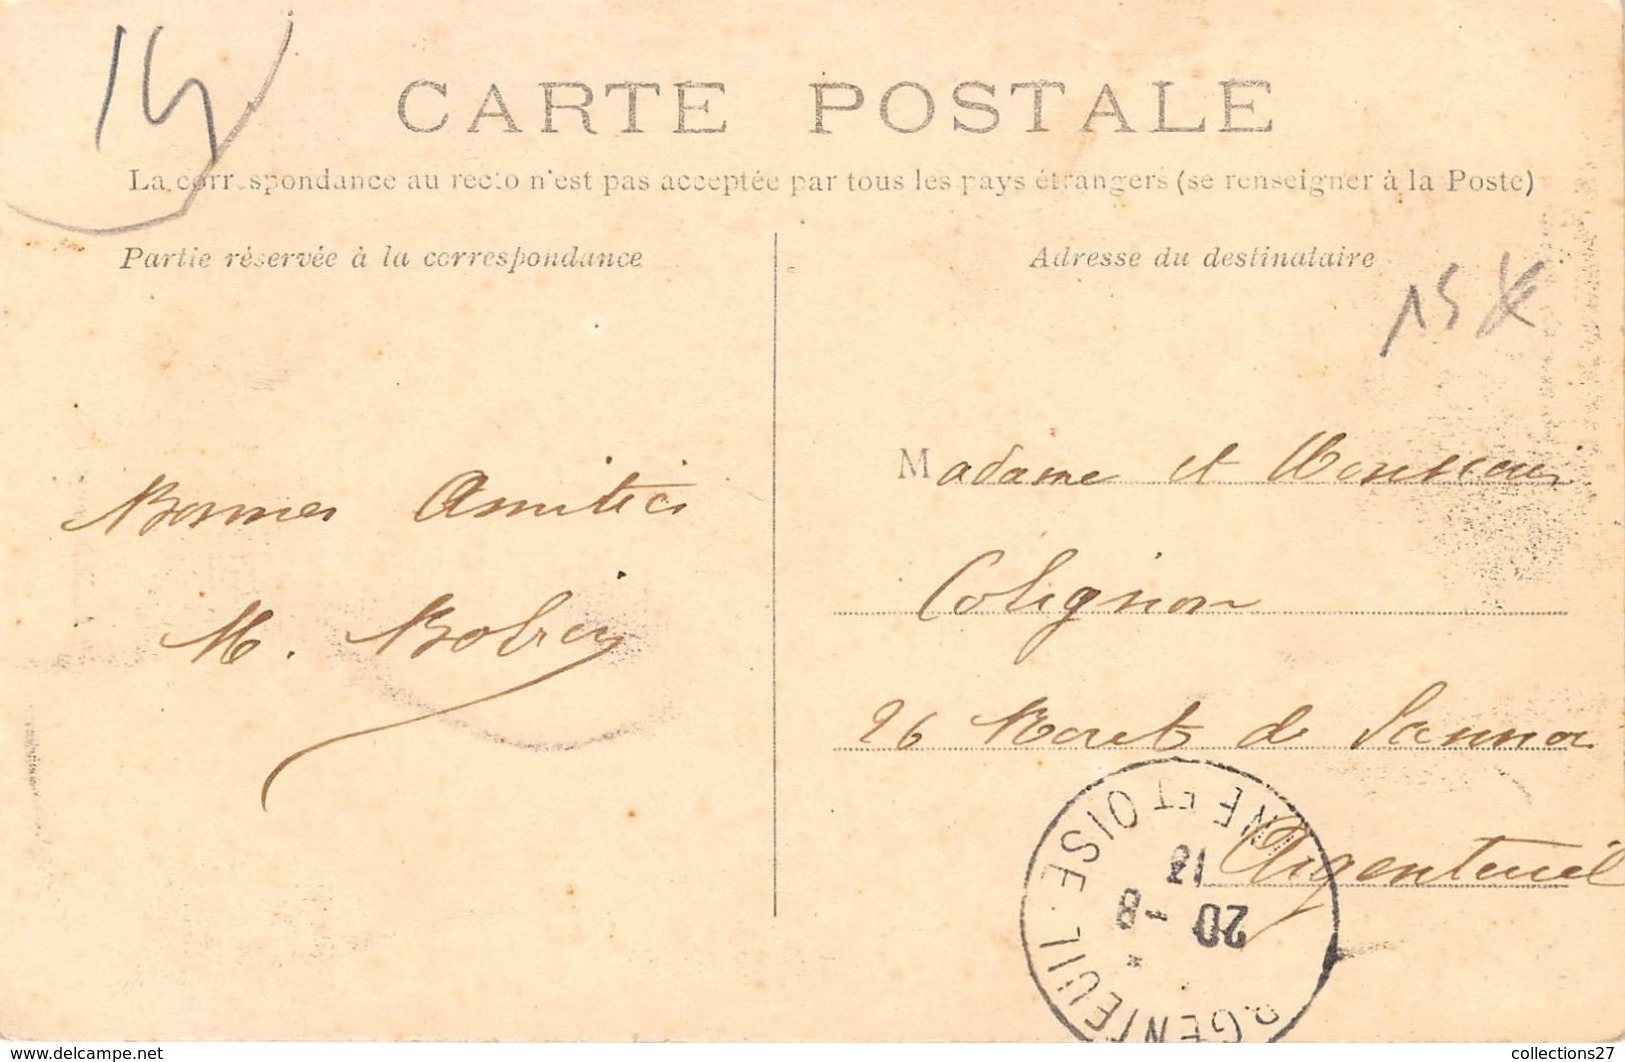 CARTE POSTALE
La correspondance au recto n'est pas acceptée par tous les pays étrangers (se renseigner à la Poste)
Partie réservée à la correspondance
Adresse du destinataire
15
Bonnes Amitiés
M.
Madame et Monsieur
Colignon
26 de Sannoi
Argenteuil
ARGENTEUIL SEINE ET OISE
20
1-8
12
www.delcampe.net
collections27